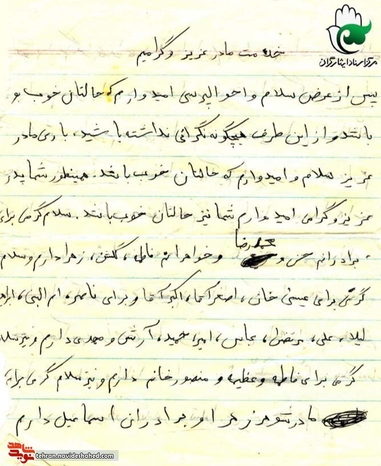 مرکز اسناد ایثارگران
خدمت مادر عزیز و گرامیم
پس از عرض سلام و احوالپرسی امیدوارم که حالتان خوب بو
باشد و از این طرف هیچگونه نگرانی نداشته باشید، باری مادر
عزیزم سلام و امیدوارم که حالتان خوب باشد. همینطور شما پدر
عزیز و گرامی امیدوارم شما نیز حالتان خوب باشد. سلام گرمی برای
برادرانم حسن و محمدرضا و خواهرانم فاطمه، گلثن، زهرا دارم و سلام
گرمی برای عیسی خان، اصغر آقا، اکبر آقا و برای ناصر، ام البنی،
لیلا، علی، مرتضی، عباس، امیر، حمید، آرش و مهدی دارم و نیز سلا
گرمی برای فاطمه و عظیمه و منصور خانم دارم و نیز سلام گرمی برای
مادر شوهر زهرا و برادران اسماعیل دارم
نوید شاهد
tehran.navideshahed.com